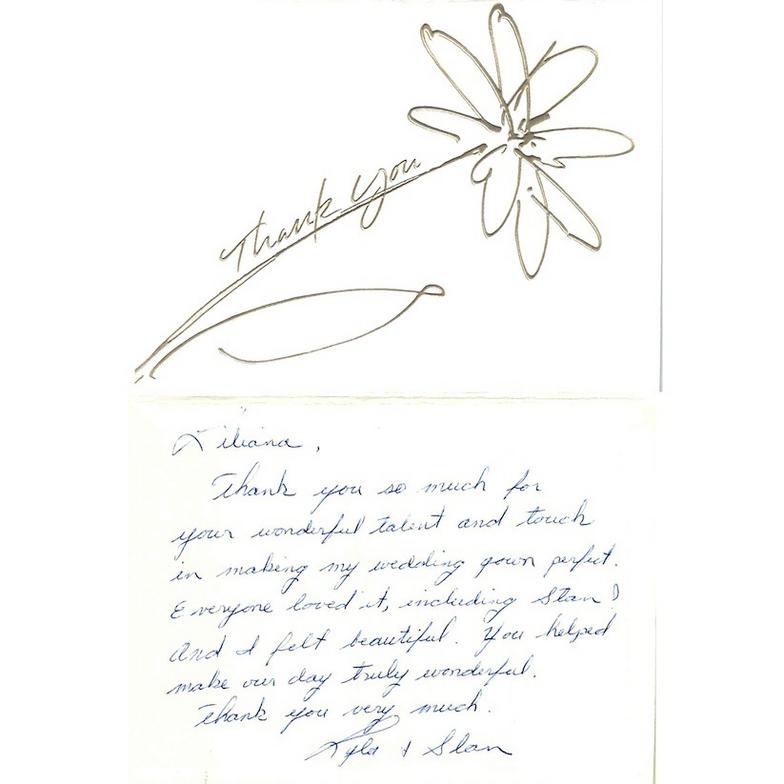 Thank You
Liliana,
Thank you so much for
your wonderful talent and touch
in making my wedding gown perfect.
Everyone loved it, including Stan!
And I felt beautiful. You helped
make our day truly wonderful.
Thank you very much.
Kyla + Stan